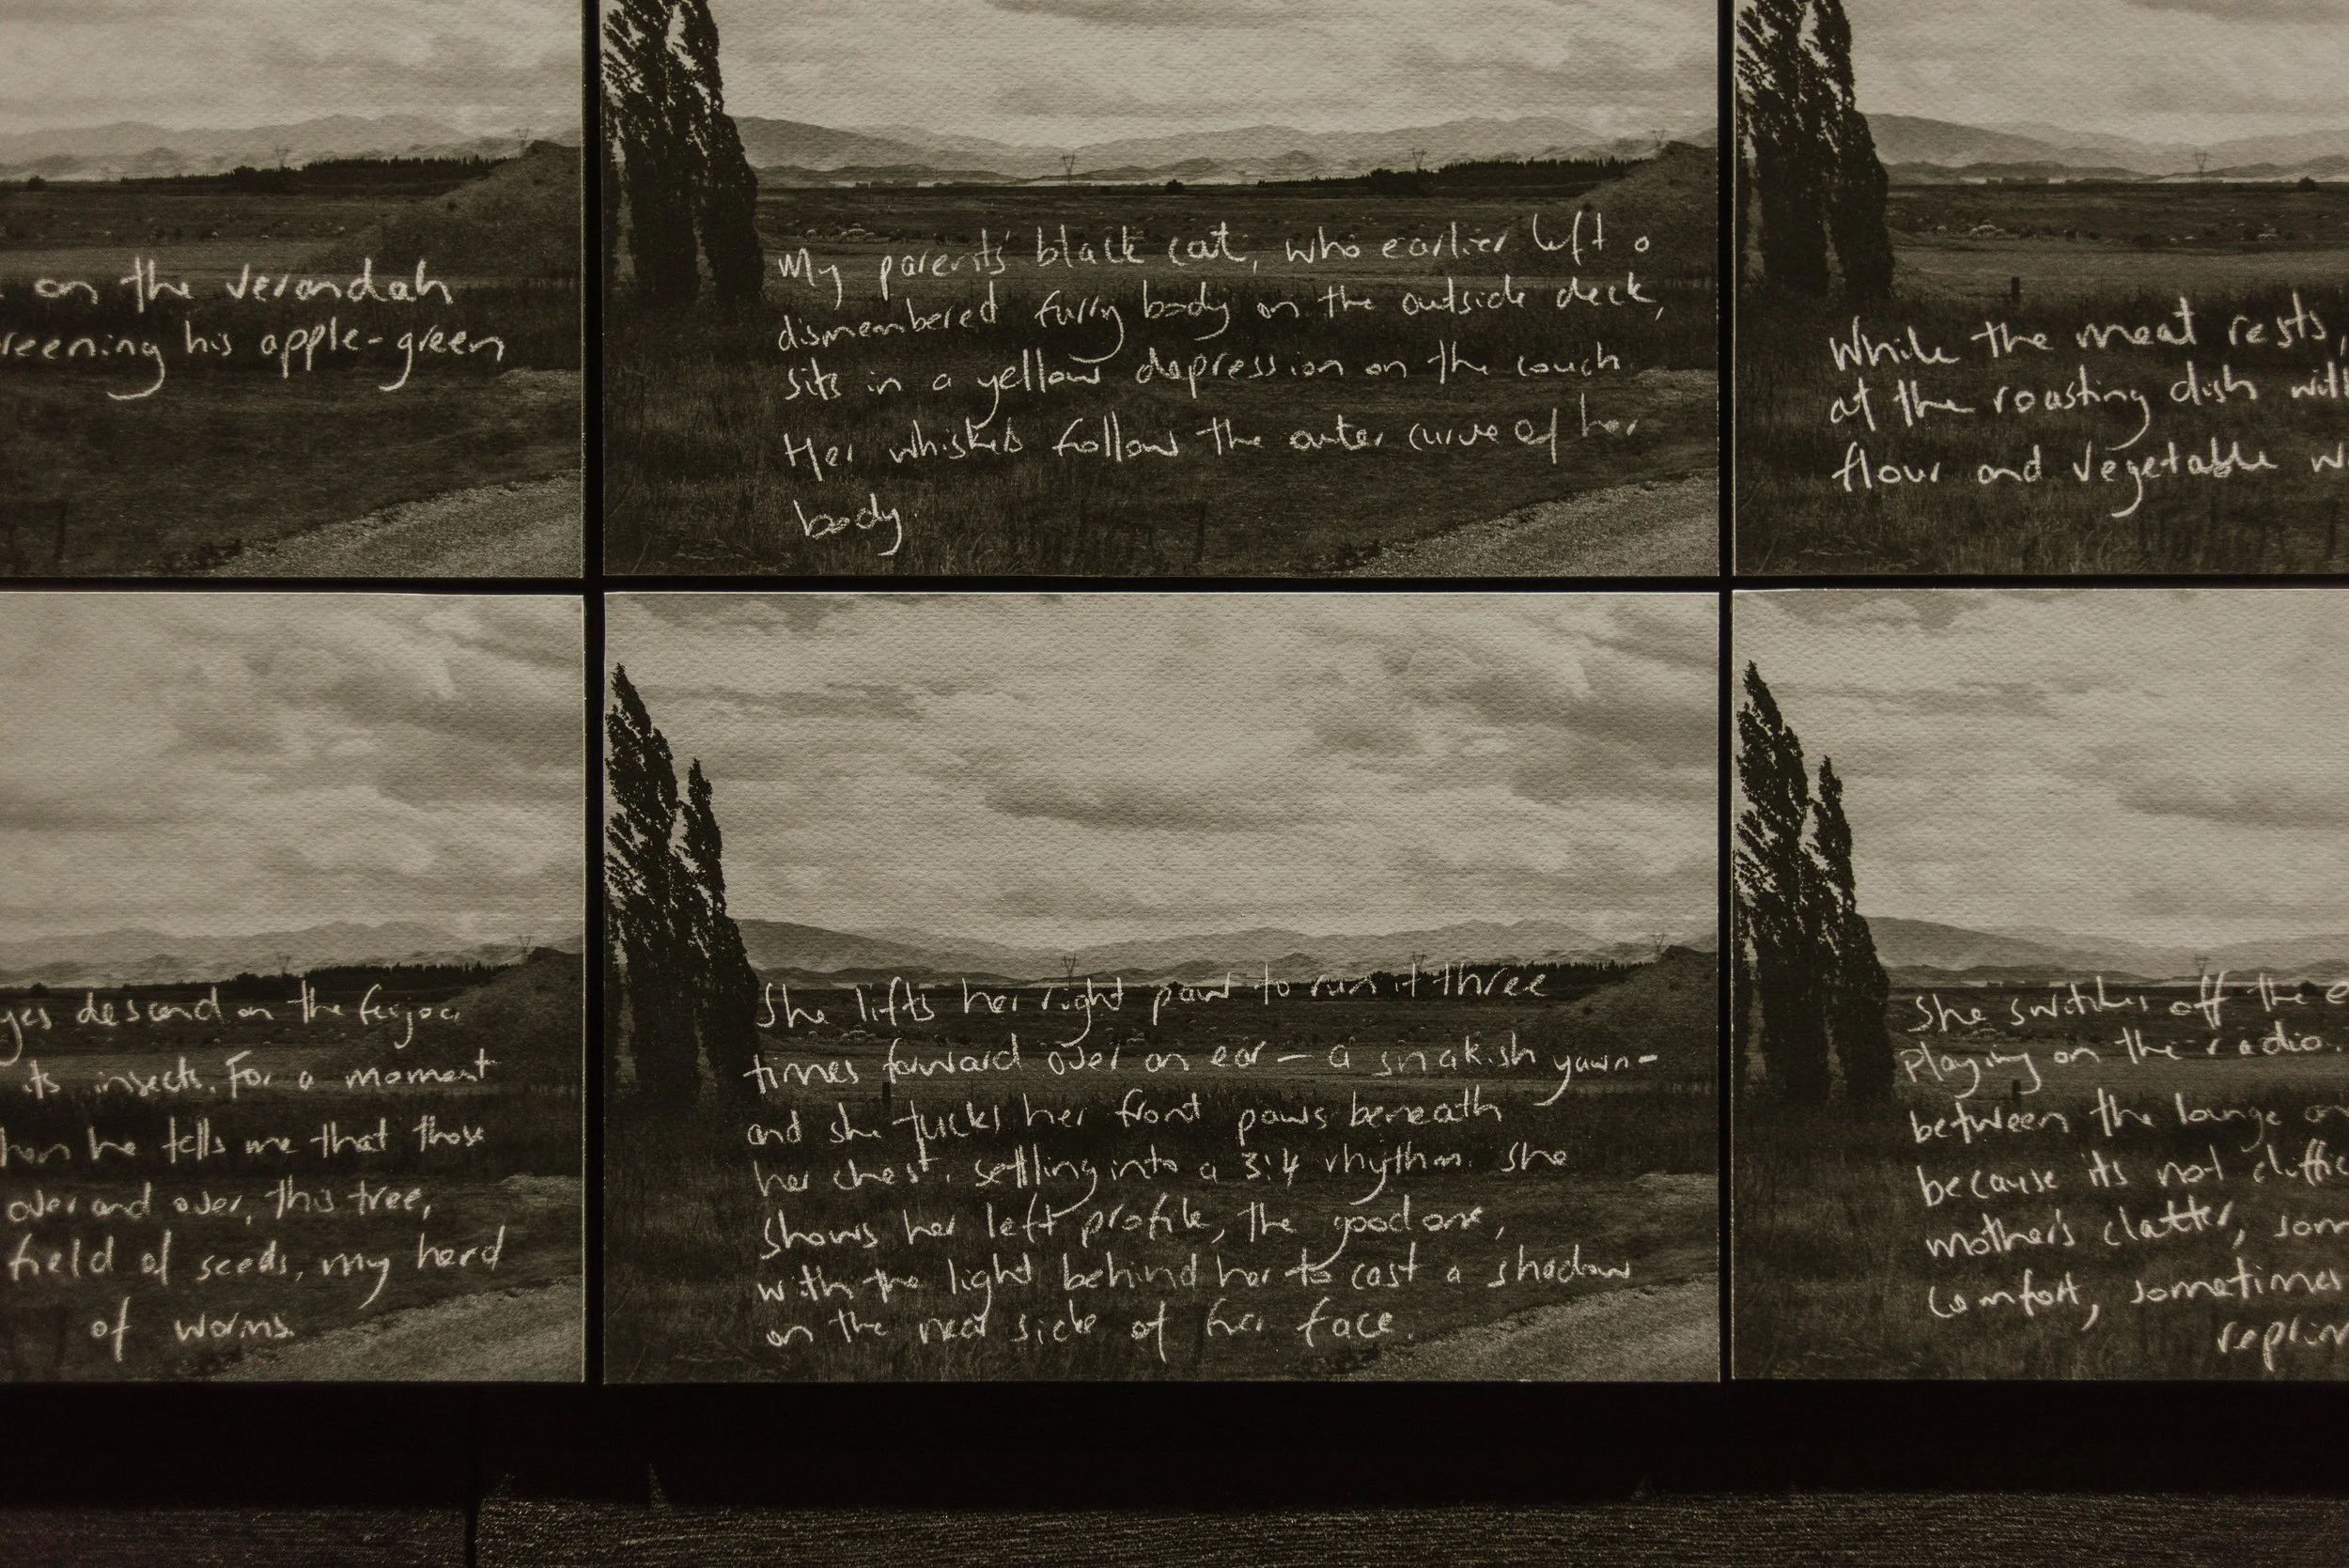 on the verandah
reening his apple-green
My parents' black cat, who earlier left a
dismembered furry body on the outside deck,
sits in a yellow depression on the couch.
Her whiskers follow the outer curve of her
body
While the meat rests,
at the roasting dish
flour and vegetable
yes descend on the feijoa
its insects. For a moment
he tells me that those
over and over, this tree,
field of seeds, my herd
of worms.
She lifts her right paw to run it three
times forward over an ear – a snakish yawn –
and she tucks her front paws beneath
her chest, settling into a 3:4 rhythm. She
shows her left profile, the good one,
with the light behind her to cast a shadow
on the near side of her face.
She switches off the
playing on the radio.
between the lounge
because its not
mother's clatter,
comfort, sometimes